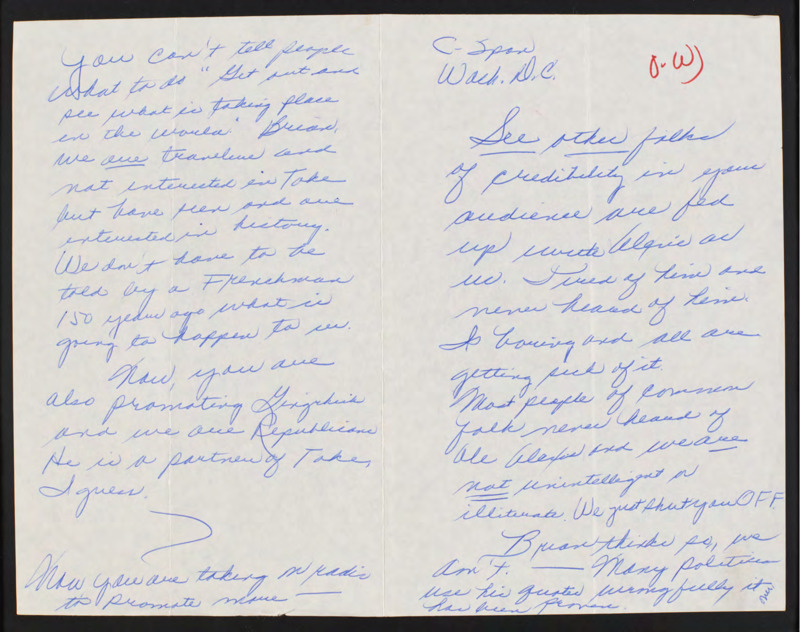 C-Span
Wash. D.C.
See other folks
of credibility in your
audience are fed
up with Alexis as
us. Tired of him and
never heard of him.
Is boring and all are
getting sick of it.
Most people of common
folk never heard of
Ole Alexis and we are
not unintelligent or
illiterate. We just shut you OFF.
Brian thinks so, we
don't. — Many politicians
use his quotes wrongfully it
has been proven.
over
You can't tell people
what to do "Get out and
see what is taking place
in the world" Brian,
we are travelers and
not interested in Toke
but have been and are
interested in history.
We don't have to be
told by a Frenchman
150 years ago what is
going to happen to us.
Now, you are
also promoting Gingrich
and we are Republicans
He is a partner of Toke,
I guess.
Now you are taking on radio
to promote more —